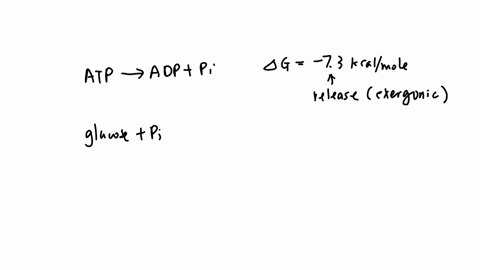 ATP → ADP + Pi ΔG = -7.3 kcal/mole
↑
release (exergonic)
glucose + Pi